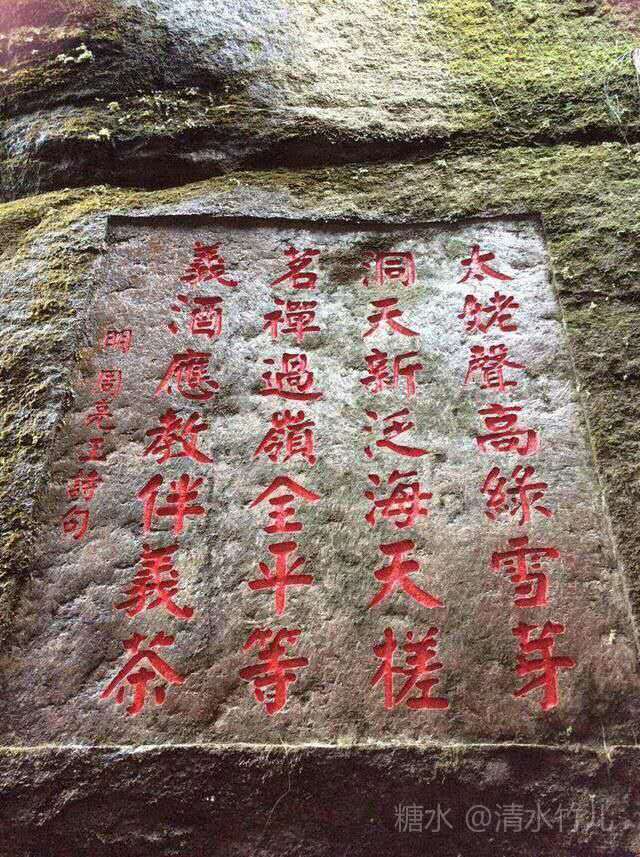 太姥聲高綠雪芽
洞天新泛海天槎
茗禪過嶺全平等
義酒應教伴義茶
明周亮工詩句
糖水 @清水竹儿